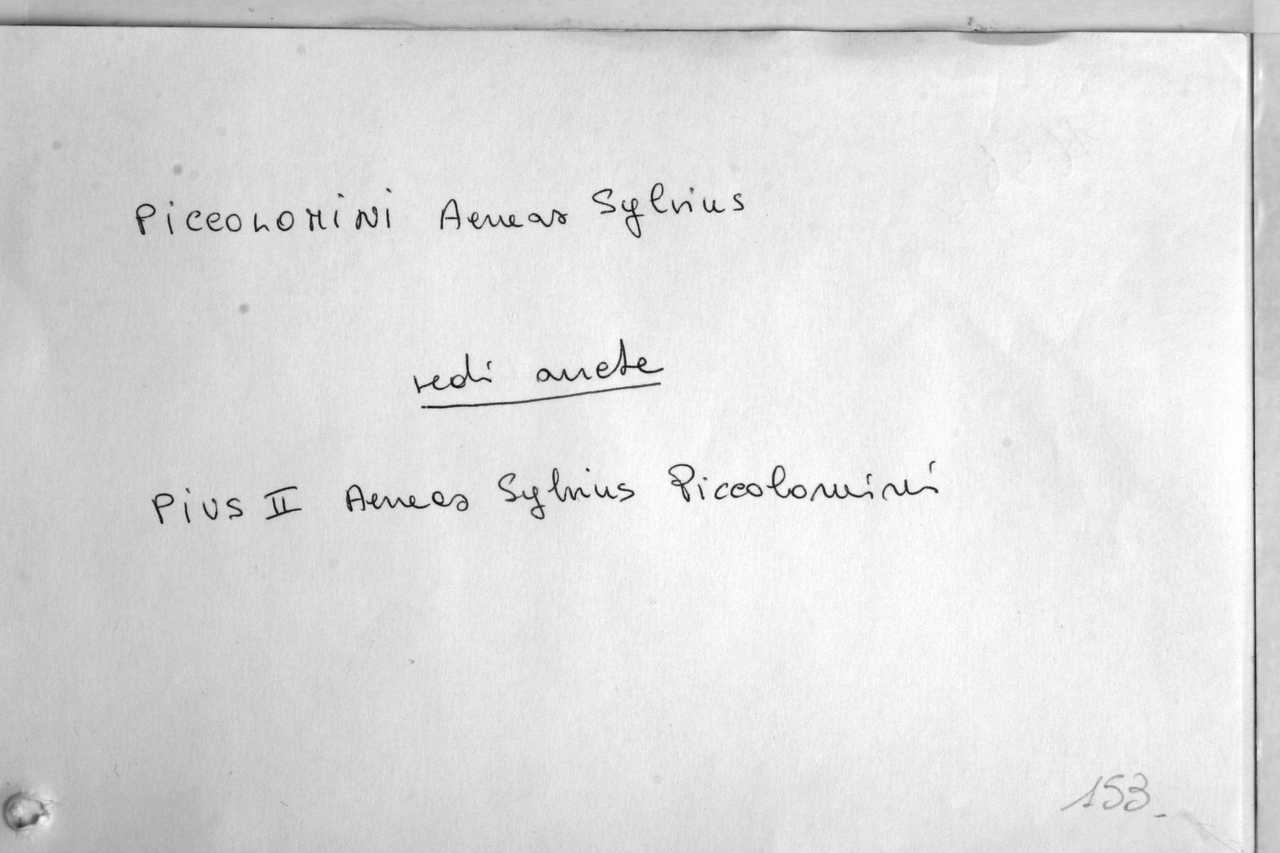 PICCOLOMINI Aeneas Sylvius
vedi anche
PIUS II Aeneas Sylvius Piccolomini
153.